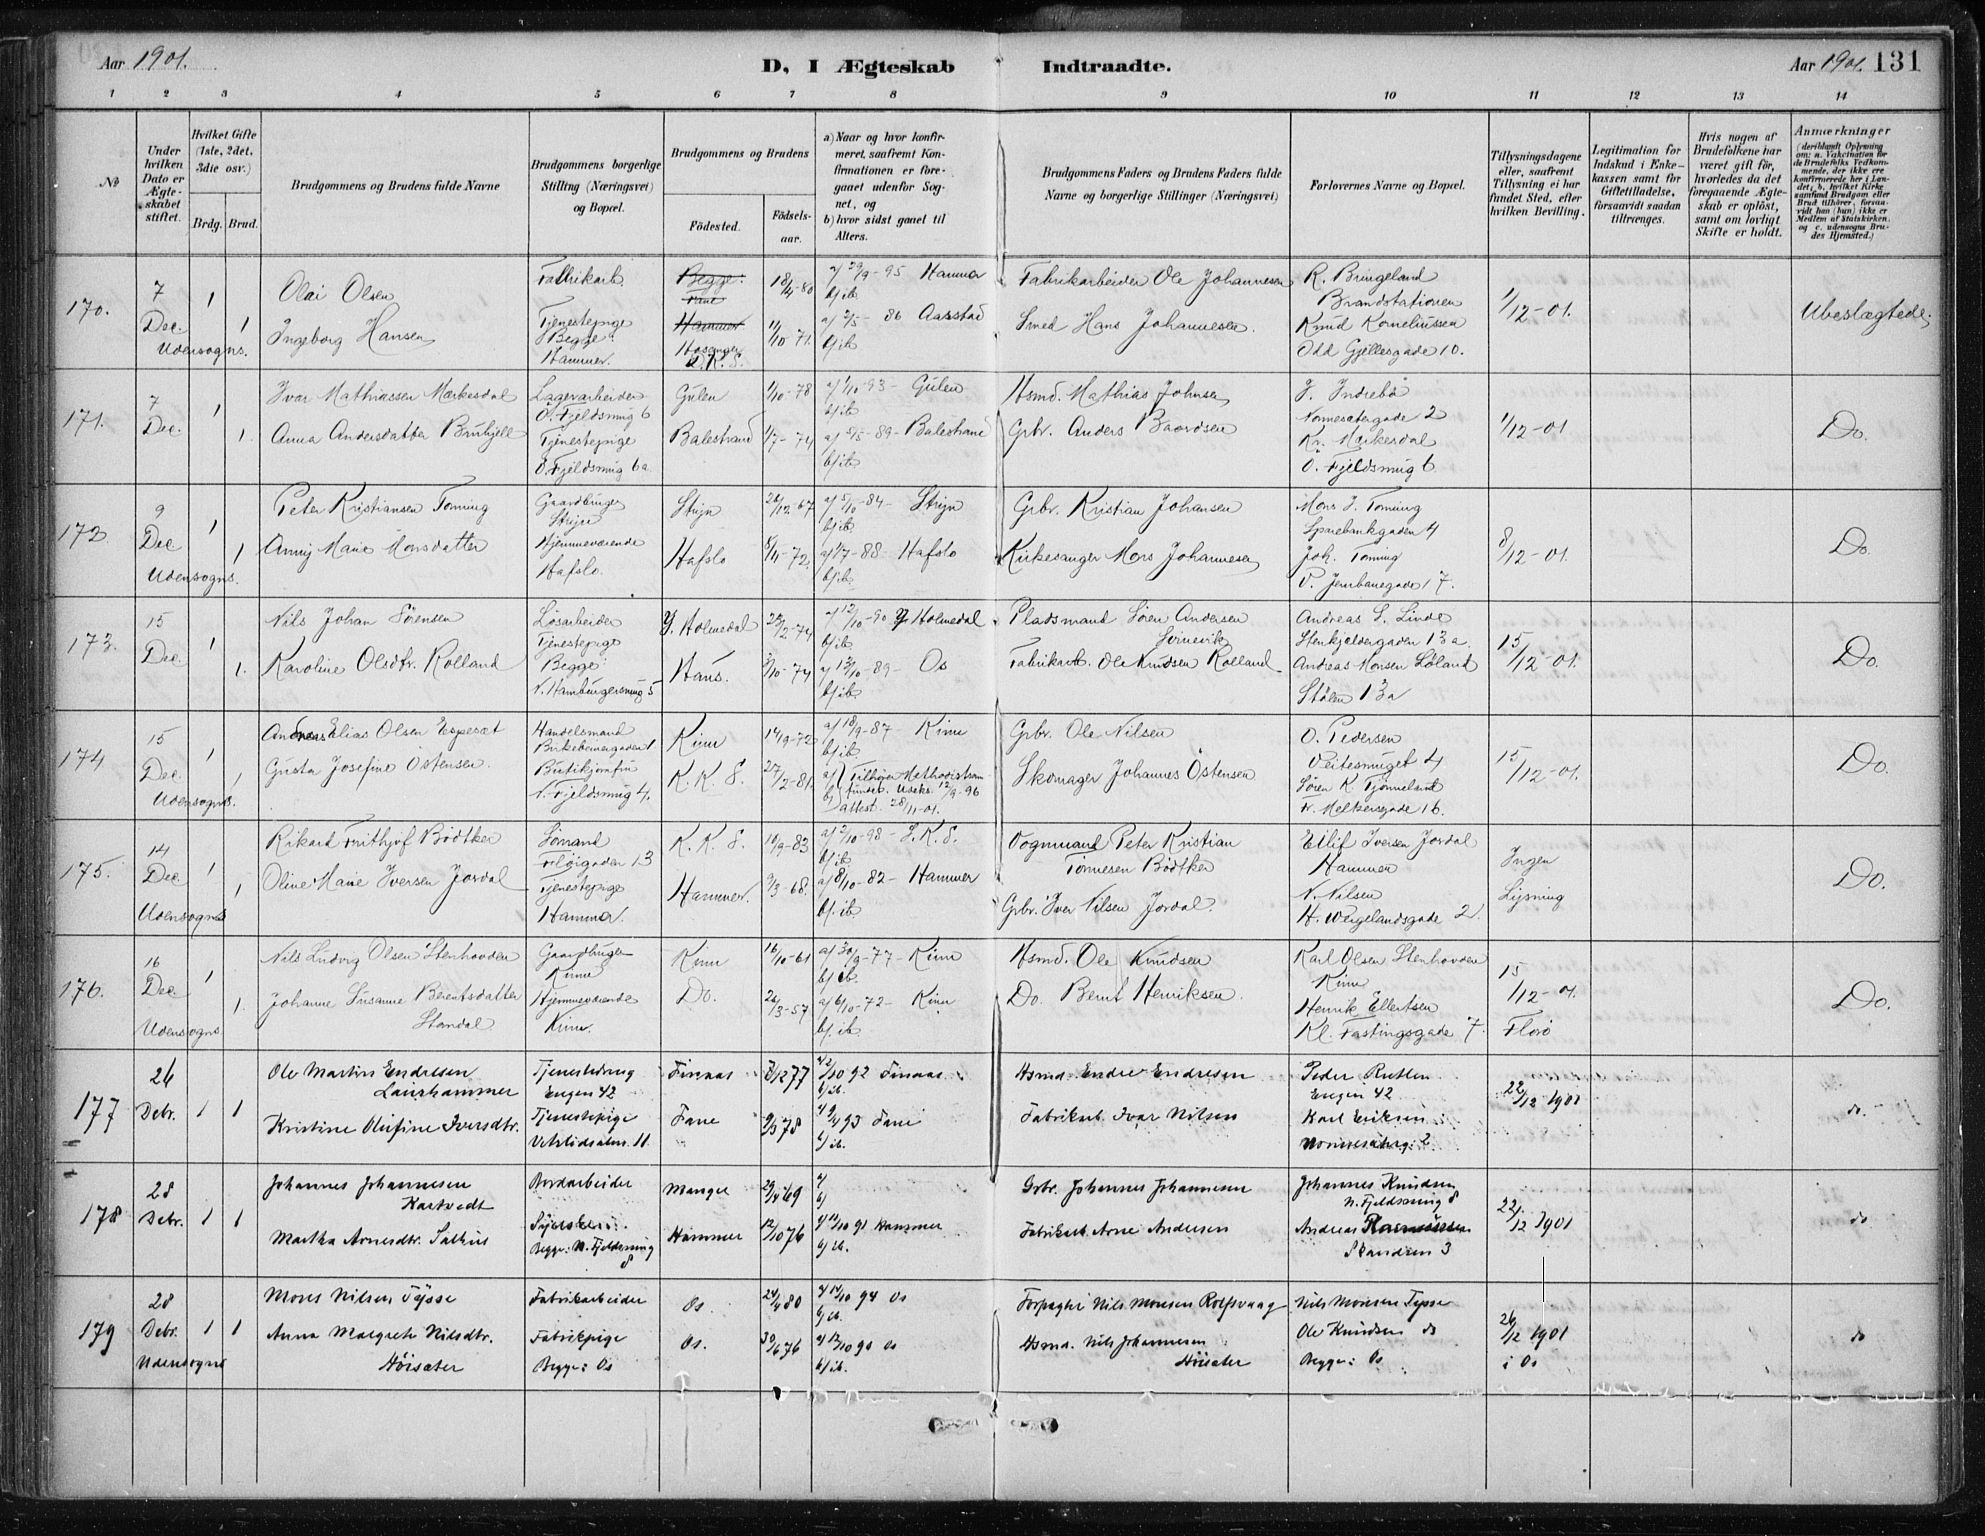 Aar 1901.
D, I Ægteskab Indtraadte.
Aar 1901. 131
1 2 3 4 5 6 7 8 9 10 11 12 13 14
No
Under hvilken Dato er Ægteskabet stiftet.
Hvilket Gifte (1ste, 2det, 3die osv.)
Brdg. Brud.
Brudgommens og Brudens fulde Navne
Brudgommens borgerlige Stilling (Næringsvei) og Bopæl.
Brudgommens og Brudens
Fødested. Fødselsaar.
a) Naar og hvor konfirmeret, saafremt Konfirmationen er foregaaet udenfor Sognet, og
b) hvor sidst gaaet til Alters.
Brudgommens Faders og Brudens Faders fulde Navne og borgerlige Stillinger (Næringsvei)
Forlovernes Navne og Bopæl.
Tillysningsdagene eller, saafremt Tillysning ei har fundet Sted, efter hvilken Bevilling.
Legitimation for Indskud i Enkekassen samt for Giftetilladelse, forsaavidt saadan tiltrænges.
Hvis nogen af Brudefolkene har været gift før, hvorledes da det foregaaende Ægteskab er opløst, samt om lovligt Skifte er holdt.
Anmærkninger (deriblandt Oplysning om: a. Vakcination for de Brudefolks Vedkommende, der ikke ere konfirmerede her i Landet, b. hvilket Kirkesamfund Brudgom eller Brud tilhører, forsaavidt han (hun) ikke er Medlem af Statskirken, og c. udensogns Brudes Hjemsted.)
170. 7 Dec. Udensogns. 1 1
Olai Olsen
Ingeborg Hansen
Fabrikarb.
Tjenestepige
Begge: Hammer.
Begge: Fane
Hammer
Hosanger
18/4-80
11/10-71.
a/ 29/9-95 Hammer
b/ ib.
a/ 2/5-86 Aarstad
b/ ib
Fabrikarbeider Ole Johannesen
Smed Hans Johannesen.
R. Bringeland
Brandstationen
Knud Korneliussen
Odd Gjellesgade 10.
1/12-01.
Ubeslægtede.
171. 7 Dec. 1 1.
Ivar Mathiassen Markesdal
Anna Andersdatter Bruhjell
Lagerarbeider
Ø. Fjeldsmug 6
Tjenestepige
Ø. Fjeldsmug 6a
Gulen
Balestrand
1/10-78
1/7-74
a/ 1/10-93- Gulen
b/ ib
a/ 5/5-89- Balestrand
b/ ib
Hsmd. Mathias Johnsen
Grbr. Anders Baardsen
J. Indrebø
Nonnesætergade 2
Kr. Markesdal
Ø. Fjeldsmug 6
1/12-01
Do.
172. 9 Dec Udensogns. 1 1
Peter Kristiansen Tonning
Anny Marie Monsdatter
Gaardbruger
Stryn
Hjemmeværende
Hafslo.
Stryn
Hafslo
26/12-67
8/11-72.
a/ 5/10-84- Stryn
b/ ib
a/ 1/7-88- Hafslo
b/ ib
Grbr. Kristian Johansen
Kirkesanger Mons Johannesen
Mons J. Tonning
Sparebankgaden 4
Joh. Tonning
V. Jernbanegade 17.
8/12-01.
Do.
173. 15 Dec. 1 1.
Nils Johan Sørensen
Karoline Olsdtr. Rolland
Løsarbeider
Tjenestepige
Begge:
N. Hamburgersmug 5
Y. Holmedal
Haus.
23/2-74
3/10-74
a/ 12/10-90 Y Holmedal
b/ ib.
a/ 13/10-89- Os
b/ ib
Pladsmand Søren Andersen
Svinevik
Fabrikarb. Ole Knudsen Rolland
Andreas S. Linde
Stenkjeldergaden 13a
Andreas Monsen Løland
Stølen 13a
15/12-01.
Do.
174 15 Dec. Udensogns. 1 1
Andreas Elias Olsen Espesæt
Gusta Josefine Østensen.
Handelsmand
Birkebeinergaden 1
Butikjomfru
N. Fjeldsmug 4.
Kinn
K. K. S.
14/9-72
27/2-81.
a/ 18/9-87 Kinn
b/ ib.
a/ b/ Tilhører Methodistsamfundet. Useks. 12/9-96
attest. 28/11-01.
Grbr. Ole Nilsen
Skomager Johannes Østensen
O. Pedersen
Veitesmuget 4
Søren K. Tjønneland
Fr. Meltzersgade 16.
15/12-01.
Do.
175. 14 Dec Udensogns 1 1
Rikard Frithjof Bødtker
Oline Marie Iversen Jordal
Sømand
Fløigaden 13
Tjenestepige
Hammer.
K. K. S.
Hammer.
10/9-83
3/3-68.
a/ 2/10-98- S. K. S.
b/ ib
a/ 8/10-82- Hammer
b/ ib
Vognmand Peter Kristian
Tønnesen Bødtker
Grbr. Iver Nilsen Jordal.
Eilif Iversen Jordal
Hammer
N. Nilsen
H. Wergelandsgade 2.
Ingen Lysning
Do.
176. 16 Dec. Udensogns 1 1.
Nils Ludvig Olsen Stenhovden
Johanne Susanne Berentsdatter
Standal
Gaardbruger
Kinn
Hjemmeværende
Kinn.
Kinn
Do.
16/10-61
26/3-57
a/ 30/9-77- Kinn
b/ ib.
a/ 6/10-72- Kinn
b/ ib.
Hsmd. Ole Knudsen
Do. Bernt Henriksen.
Karl Olsen Stenhovden
Kinn
Henrik Ellertsen
Kl. Fastingsgade 7.
15/12-01.
Florø
Do.
177 26 Debr. 1 1
Ole Martin Endresen
Laurhammer
Kristine Olufine Iversdtr.
Tjenestedreng
Engen 42
Tjenestepige
Vetrlidsalm. 11
Finaas
Fane
3/12 77
9/3 78
a/ 2/10 92 Finaas
b/ ib.
a/ 9/4 93 Fane
b/ ib.
Hsmd. Endre Endresen
Fabrikarb. Ivar Nilsen
Peder Rutlen
Engen 42
Karl Eriksen
Nonnesæterg: 2
22/12 1901
do.
178 28 Debr. 1 1
Johannes Johannesen
Kastvedt
Martha Arnesdtr. Salhus
Bordarbeider
Syerske
Begge: N. Fjeldsmug 8
Manger
Hammer
29/4 69
12/10 76
a/
b/
a/ 11/10 91 Hammer
b/ ib.
Grbr. Johannes Johannesen
Fabrikarb. Arne Andersen
Johannes Knudsen
N. Fjeldsmug 8
Andreas Rasmussen
Skandsen 3
22/12 1901
do
179 28 Debr. Udensogns 1 1
Mons Nilsen Tysse
Anna Margrete Nilsdtr.
Høisæter
Fabrikarbeider
Fabrikpige
Begge: Os
Os.
Os.
24/4 80
30/6 76
a/ 14/10 94 Os
b/ ib.
a/ 12/10 90 Os
b/ ib.
Forpagter Nils Monsen Rolfsvaag
Hsmd. Nils Johannesen
Høisæter
Nils Monsen Tysse
Ole Knudsen do
Begge: Os
26/12 1901
i Os
do